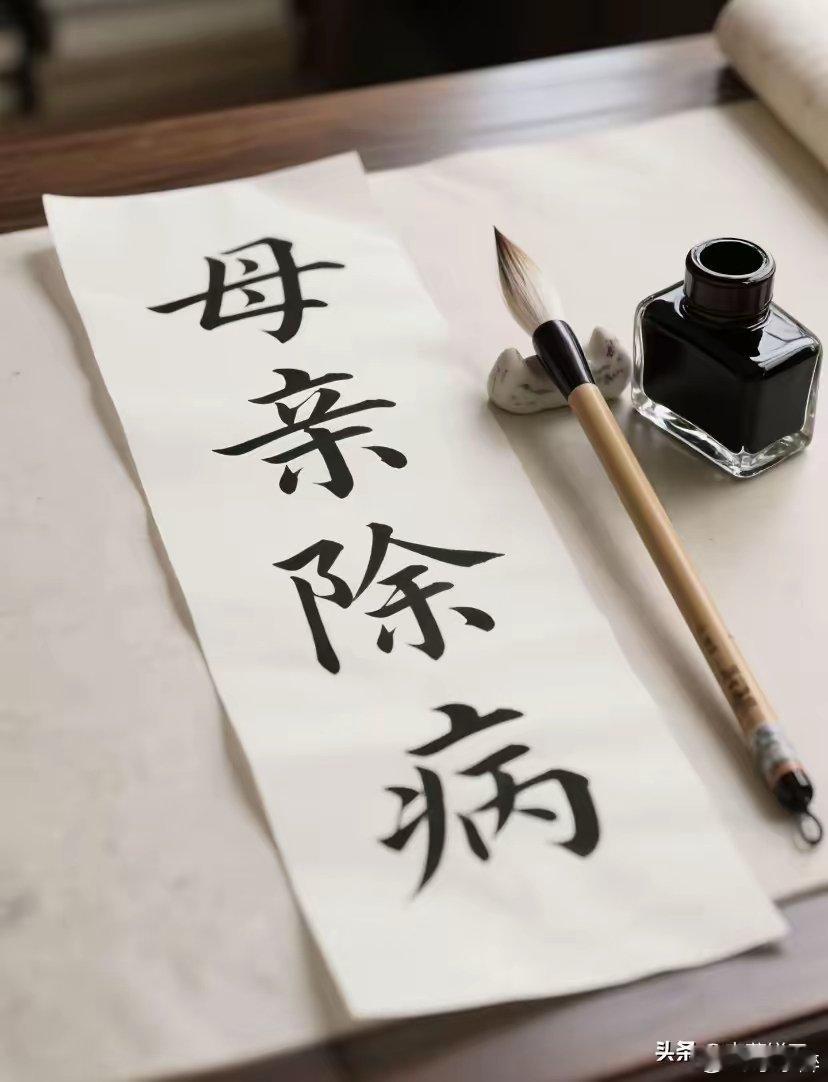 母亲除病
头条